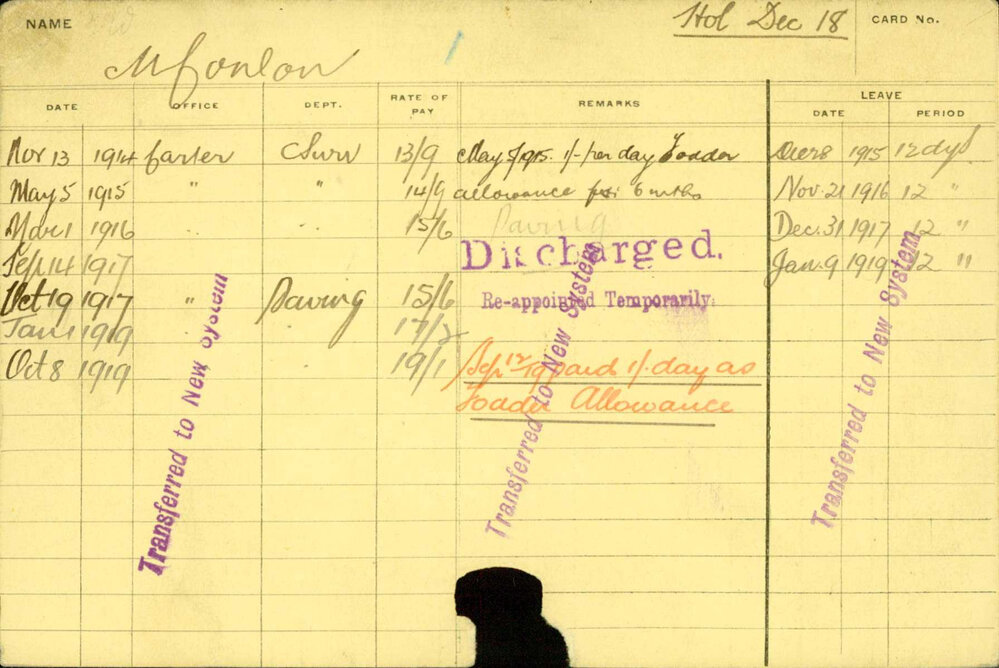 NAME
Hol Dec 18
CARD No.
M Conlon
DATE OFFICE DEPT. RATE OF PAY REMARKS LEAVE
DATE PERIOD
Nov 13 1914 Carter 13/9 May 5/1915. 1/- per day Fodder 1915 12 dys
May 5 1915 " " 14/9 allowance 6 mths Nov. 21 1916 12 "
Mar 1 1916 15/6 Paving Dec. 31 1917 12 "
Sept 14 1917 Discharged. Jan. 9 1919 12 "
Oct 19 1917 " Paving 15/6 Re-appointed Temporarily.
Jan 1 1919
Oct 8 1919 19/1 Sep 12/19 paid 1/- day as
Fodder Allowance
Transferred to New System
Transferred to New System
Transferred to New System